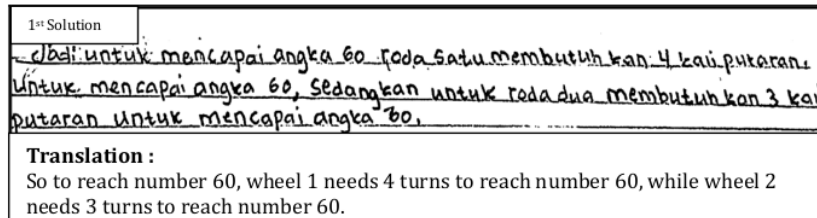 1st Solution
Jadi untuk mencapai angka 60 roda satu membutuhkan 4 kali putaran.
Untuk mencapai angka 60, sedangkan untuk roda dua membutuhkan 3 kai
putaran untuk mencapai angka 60.
Translation :
So to reach number 60, wheel 1 needs 4 turns to reach number 60, while wheel 2
needs 3 turns to reach number 60.